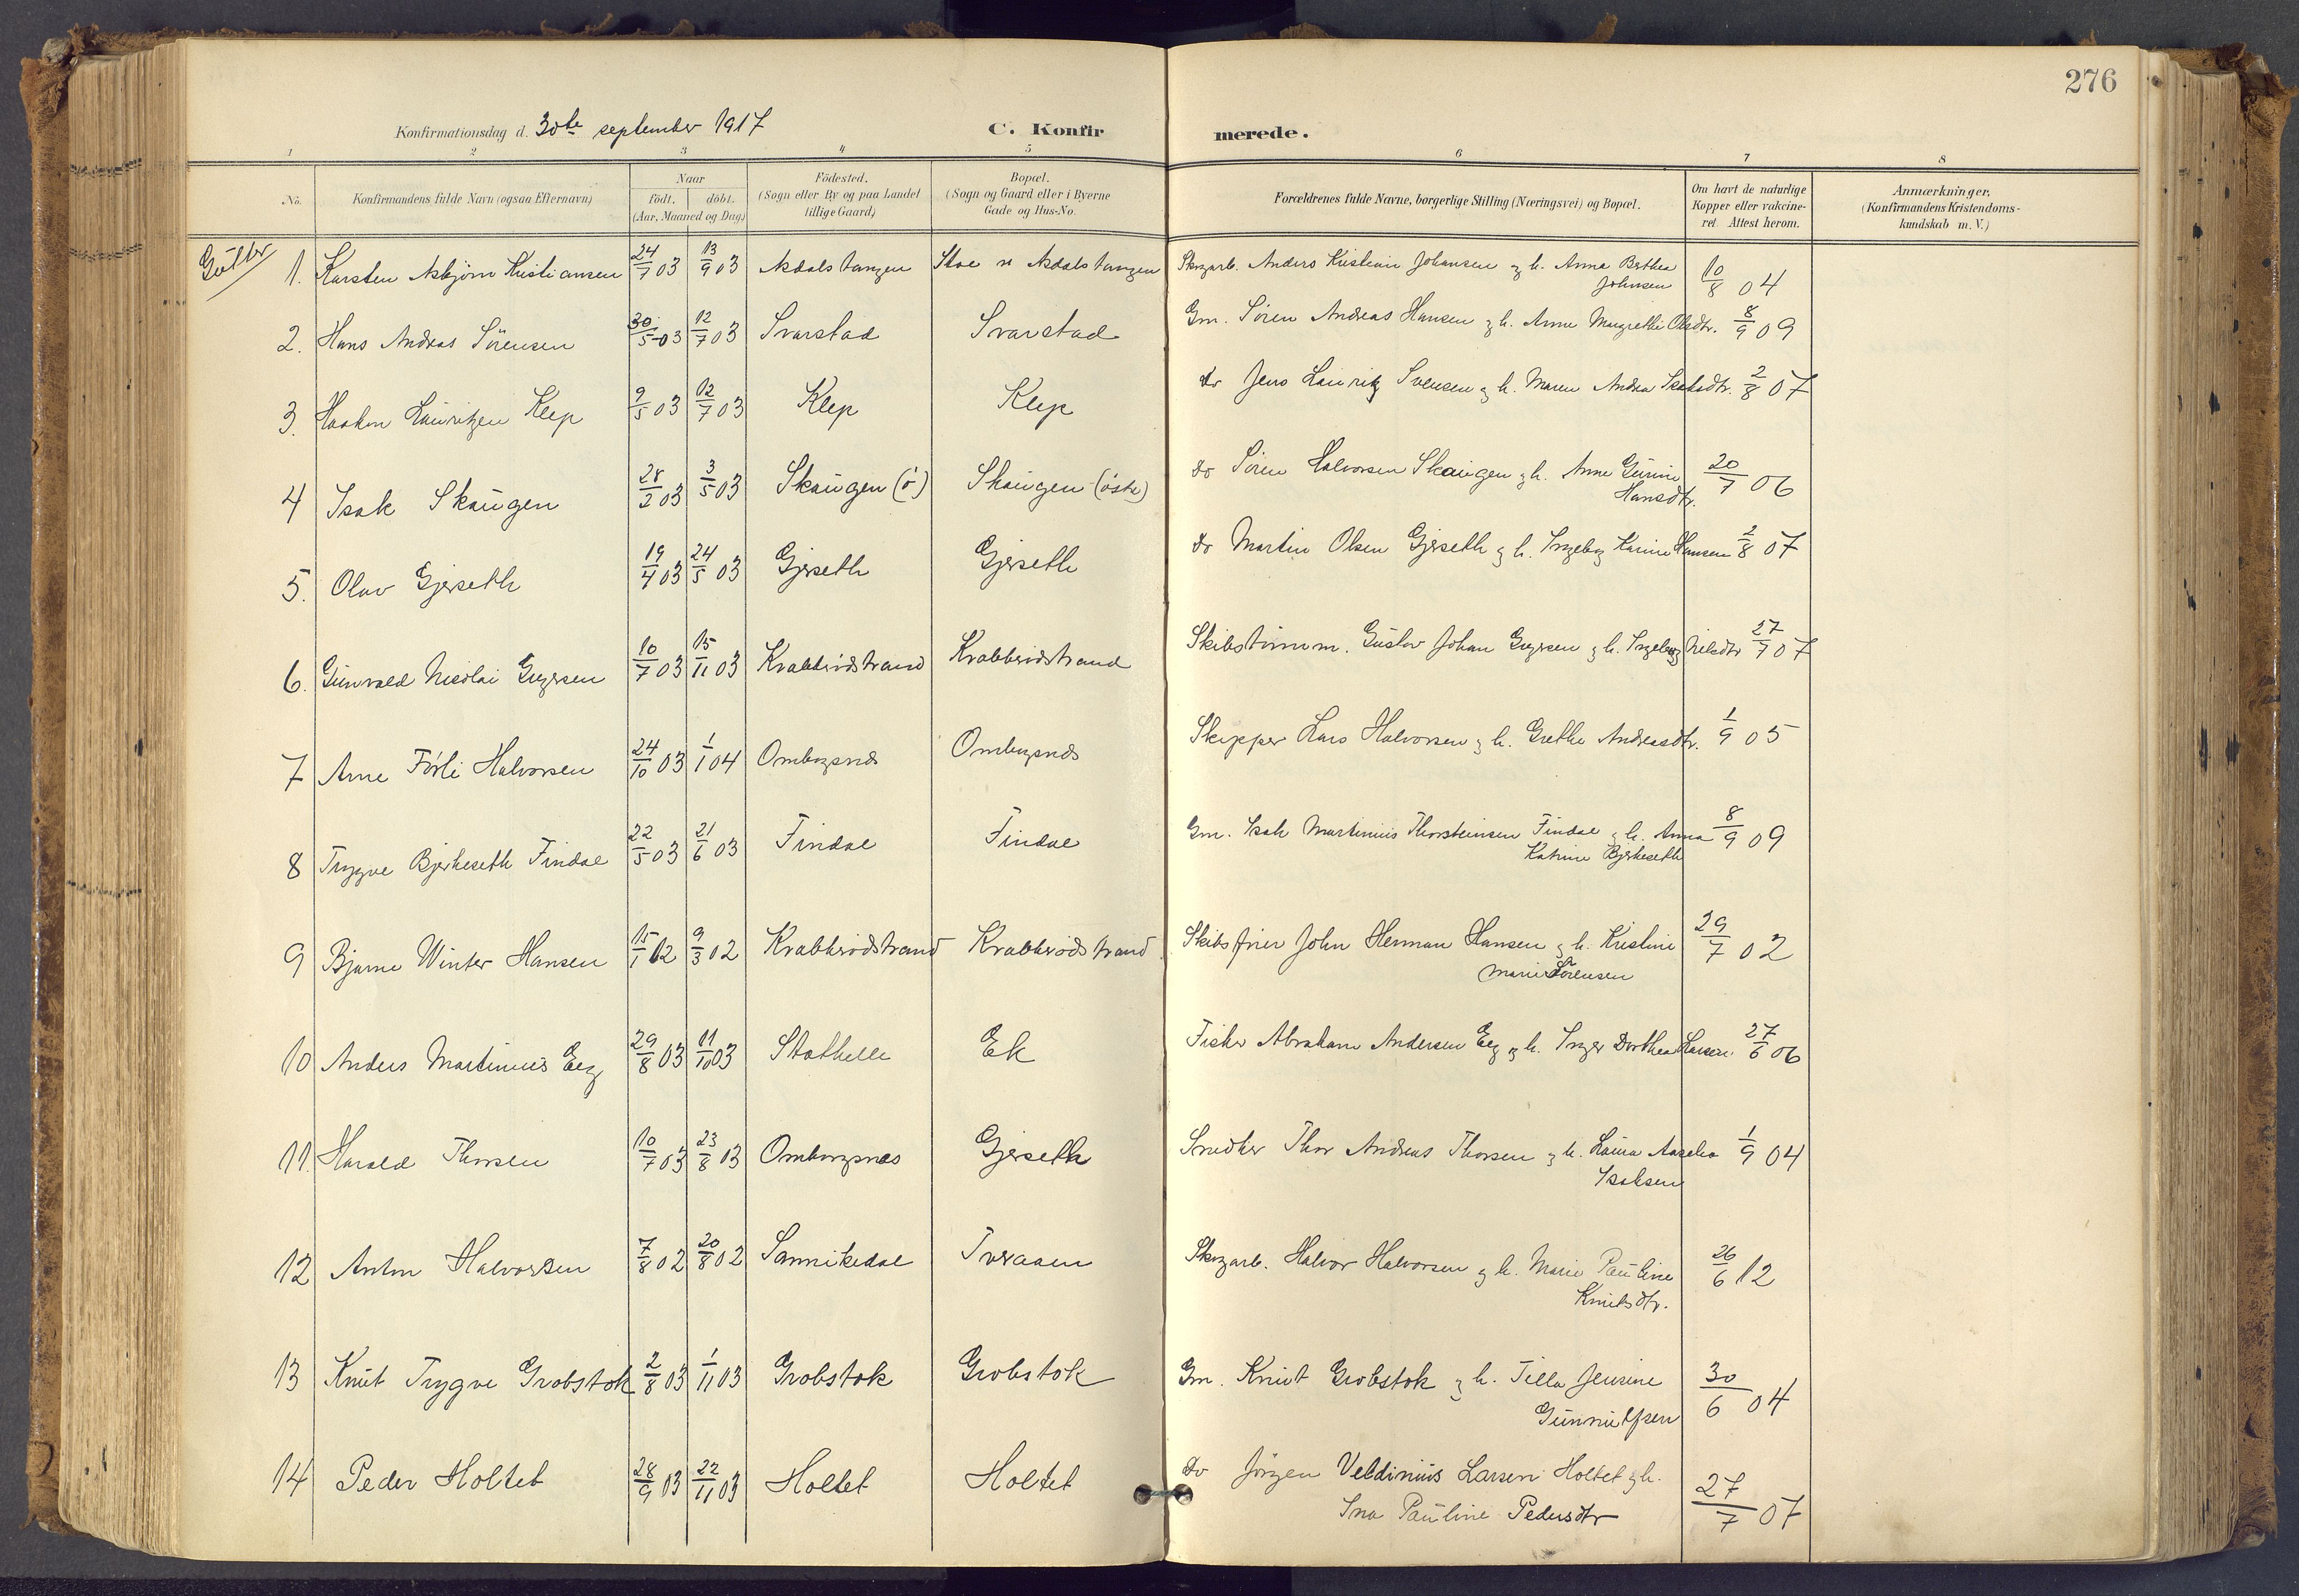 276
Konfirmationsdag d. 30te september 1917 C. Konfirmerede.
1 2 3 4 5 6 7 8
No. Konfirmandens fulde Navn (ogsaa Efternavn) Naar födt. döbt. (Aar, Maaned og Dag) Födested. (Sogn eller By og paa Landet tillige Gaard) Bopæl. (Sogn og Gaard eller i Byerne Gade og Hus-No. Forældrenes fulde Navne, borgerlige Stilling (Næringsvei) og Bopæl. Om havt de naturlige Kopper eller vakcineret. Attest herom. Anmærkninger. (Konfirmandens Kristendomskundskab m. V.)
Gutter
1. Karsten Asbjörn Kristiansen 24/7 03 13/9 03 Asdalstangen Asdalstangen Skogarb. Anders Kristian Johansen og h. Anna Berthea Johnsen 10/8 04
2. Hans Andreas Sörensen 30/5 03 12/7 03 Svarstad Svarstad Gm. Sören Andreas Hansen og h. Anne Margrethe Olsdtr. 8/9 09
3. Haakon Lauritzen Klep 9/5 03 12/7 03 Klep Klep do Jens Lauritz Svensen og h. Maren Andrea Isaksdtr. 2/8 07
4 Isak Skaugen 28/2 03 3/5 03 Skaugen (ö) Skaugen (östre) do Sören Halvorsen Skaugen og h. Anne Gurine Hansdtr. 20/7 06
5. Olav Gjerseth 19/4 03 24/5 03 Gjerseth Gjerseth do Martin Olsen Gjerseth og h. Ingeborg Karine Hansen 2/8 07
6. Gunvald Nicolai Gregersen 10/7 03 15/11 03 Krabberödstrand Krabberödstrand Skibstömm. Gustav Johan Gregersen og h. Ingeborg Nilsdtr 27/7 07
7 Arne Förli Halvorsen 24/10 03 1/1 04 Omborgsnes Omborgsnes Skipper Lars Halvorsen og h. Grethe Andreasdtr. 1/9 05
8 Trygve Bjerkeseth Findal 22/5 03 21/6 03 Findal Findal Gm. Isak Martinius Thorsteinsen Findal og h. Anna Katrine Bjerkeseth 8/9 09
9 Bjarne Winter Hansen 15/1 02 9/3 02 Krabberödstrand Krabberödstrand Skibsförer John Herman Hansen og h. Kristine Marie Sörensen 29/7 02
10 Anders Martinius Eeg 29/8 03 11/10 03 Stathelle Ek Fisker Abraham Andersen Eeg og h. Inger Dorthea Larsen. 27/6 06
11. Harald Thorsen 10/7 03 23/8 03 Omborgsnes Gjerseth Snedker Thor Andreas Thorsen og h. Laura Aasela Isaksen 1/9 04
12 Anton Halvorsen 7/8 02 20/8 02 Sannikedal Tveraaen Skogarb. Halvor Halvorsen og h. Marie Pauline Knutsdtr. 26/6 12
13 Knut Trygve Grobstok 2/8 03 1/11 03 Grobstok Grobstok Gm. Knut Grobstok og h. Tilla Jensine Gunnulfsen 30/6 04
14 Peder Holtet 28/9 03 22/11 03 Holtet Holtet do Jörgen Veldinius Larsen Holtet og h. Ina Pauline Pedersdtr 27/7 07